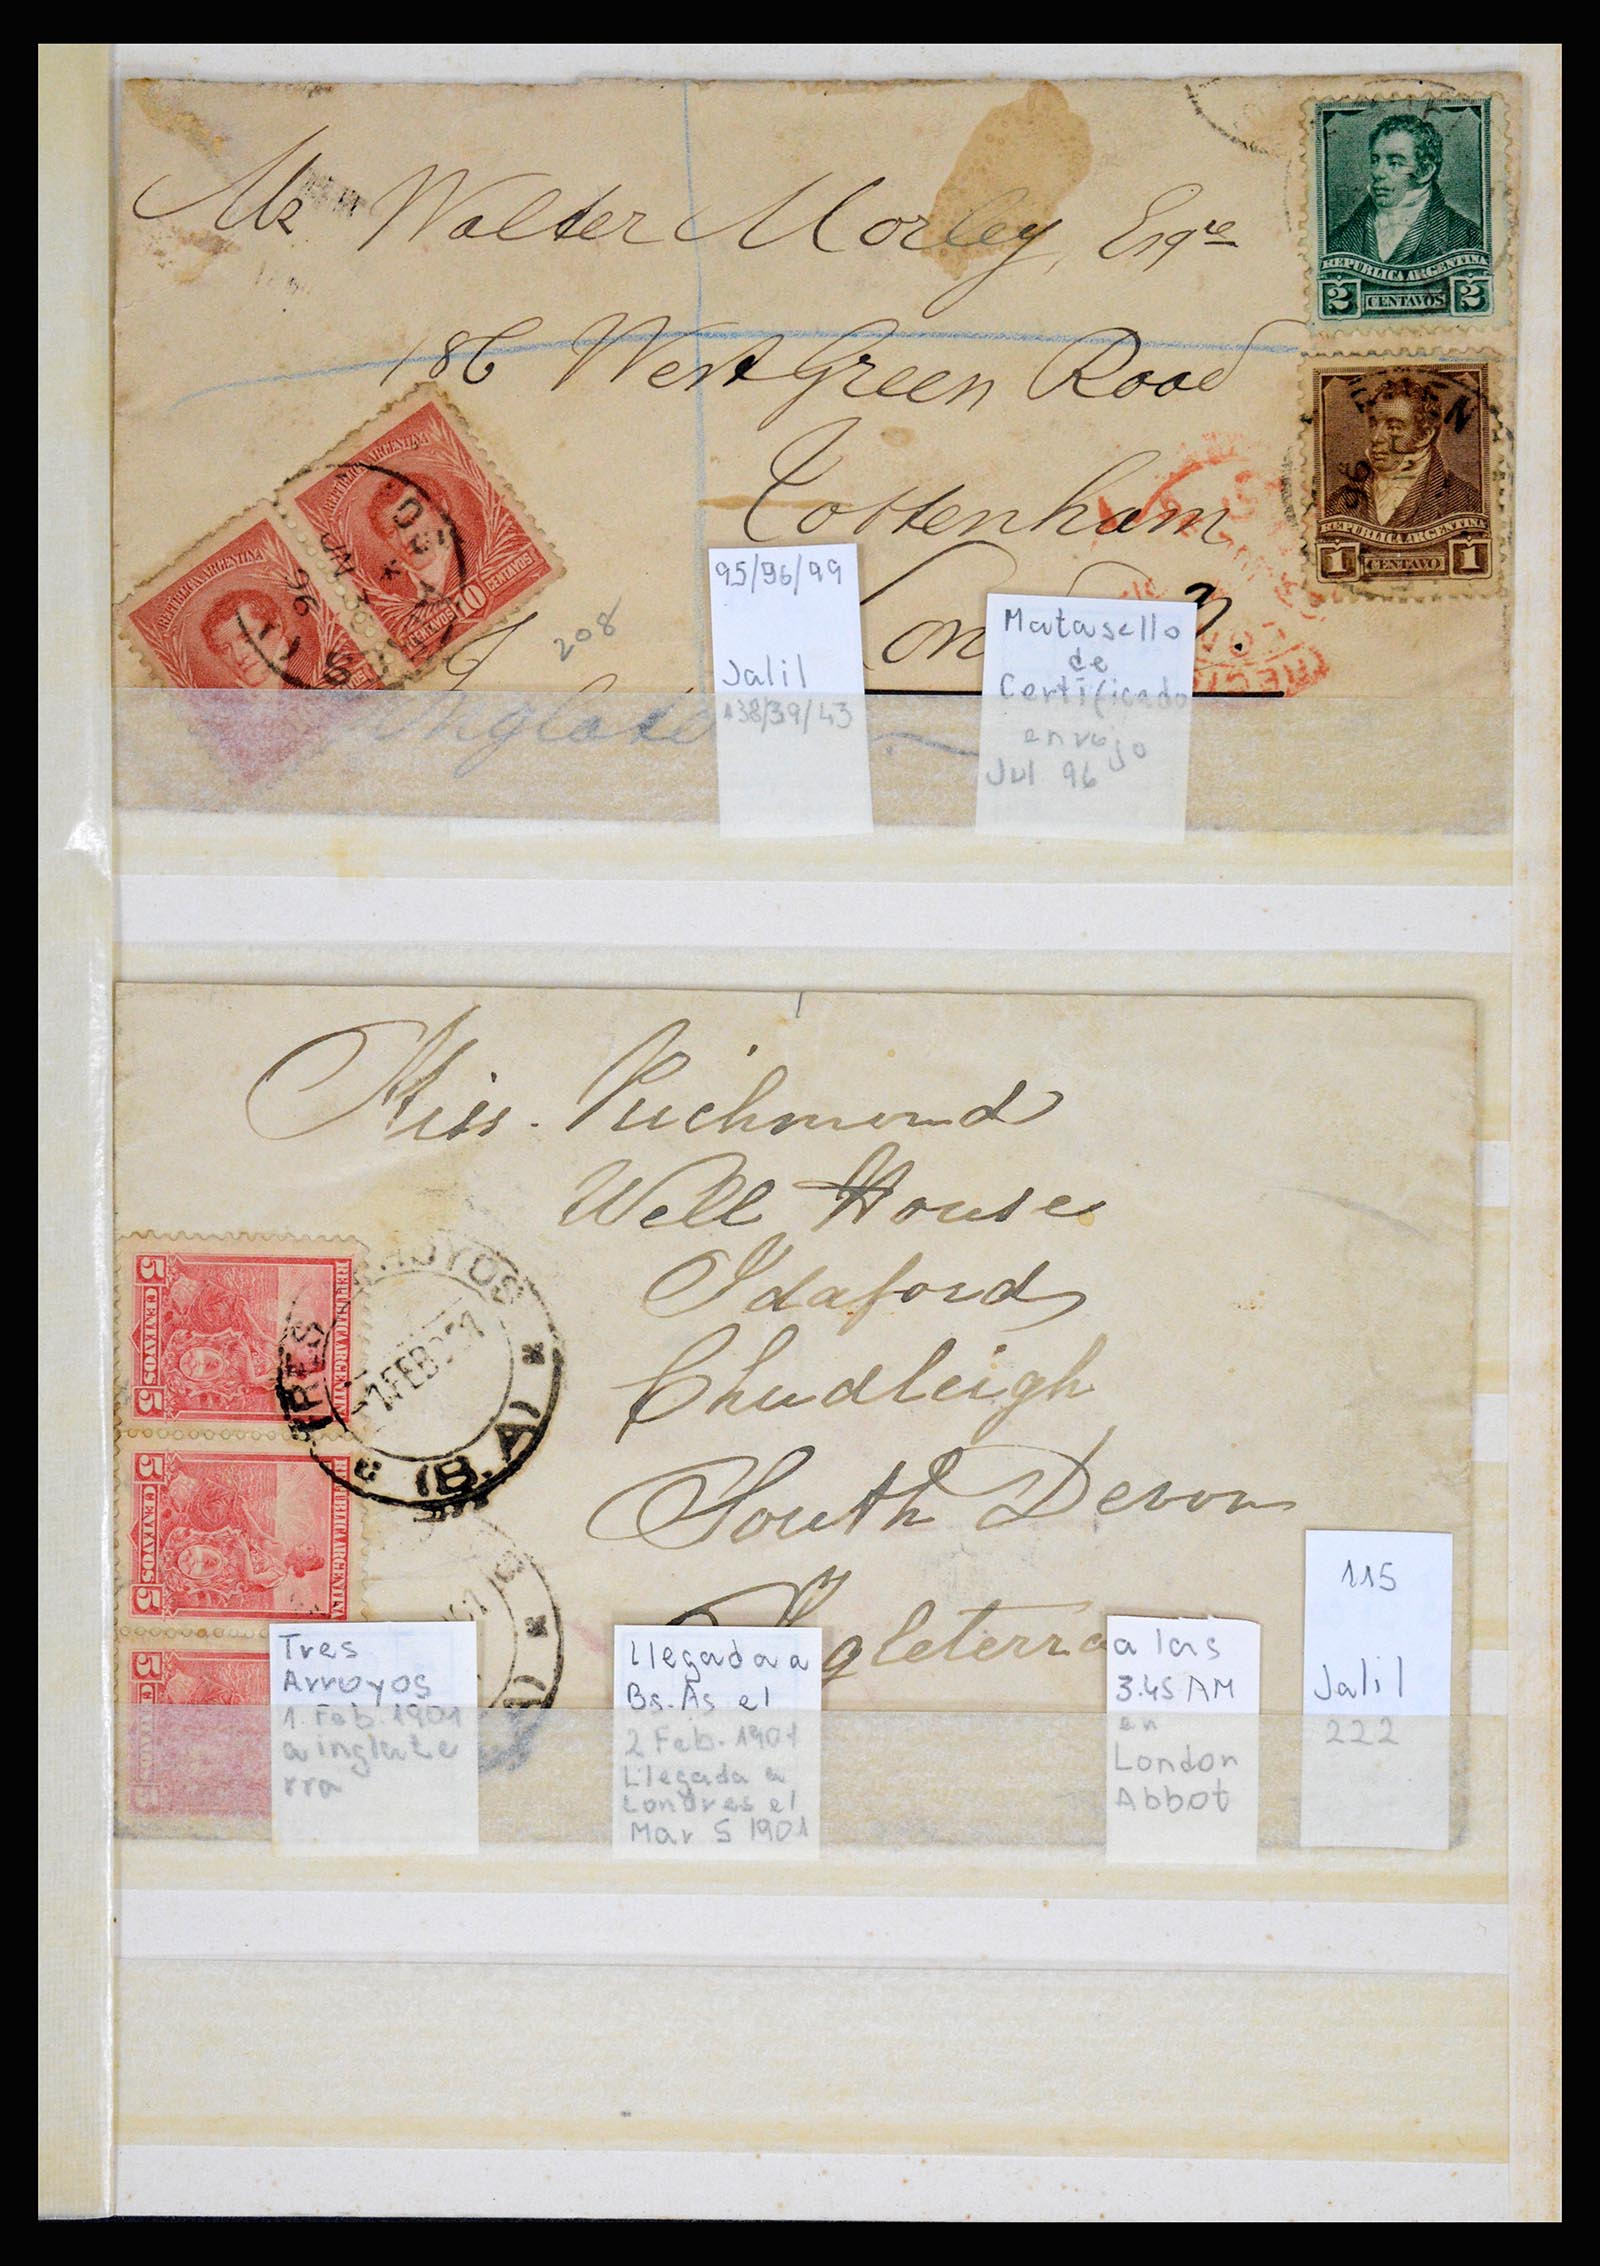 Mr Walter Morley, Esqre
186 West Green Road
Tottenham
Lon n.
Inglate
208
REPUBLICA ARGENTINA
2 CENTAVOS 2
REPUBLICA ARGENTINA
1 CENTAVO 1
96
REPUBLICA ARGENTINA
10 CENTAVOS
REPUBLICA ARGENTINA
JN
96
95/96/99
Jalil
138/39/43
Matasello
de
Certificado
en rojo
Jul 96
Miss. Richmond
Well House
Idaford
Chudleigh
South Devon
Ingleterra
REPUBLICA ARGENTINA
5 CENTAVOS 5
REPUBLICA ARGENTINA
5 CENTAVOS 5
5 CENTAVOS 5
TRES ARROYOS
1 FEB 901
(B.A)
Tres
Arroyos
1. Feb. 1901
a inglate
rra
Llegada a
Bs. As el
2 Feb. 1901
Llegada a
Londres el
Mar 5 1901
a las
3.45 AM
en
London
Abbot
115
Jalil
222